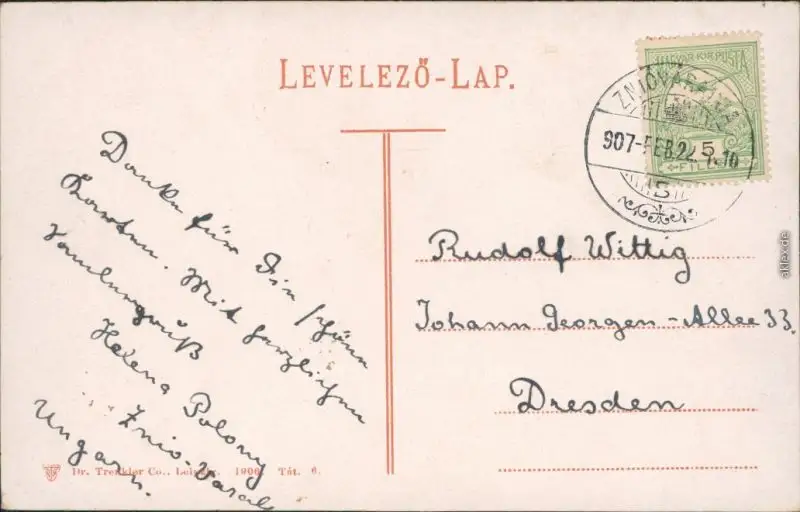 LEVELEZŐ-LAP.
MAGYAR KIR. POSTA
ZNIÓVÁRALJA
907 FEB. 22. 5
5
FILLÉR
Danke für Die schönen
Karten. Mit herzlichem
Sammlergruß
Helena Polony
Znio-Varalja
Ungarn.
Rudolf Wittig
Johann Georgen-Allee 33.
Dresden
Dr. Trenkler Co., Leipzig. 1906. Tát. 6.
akpool.de